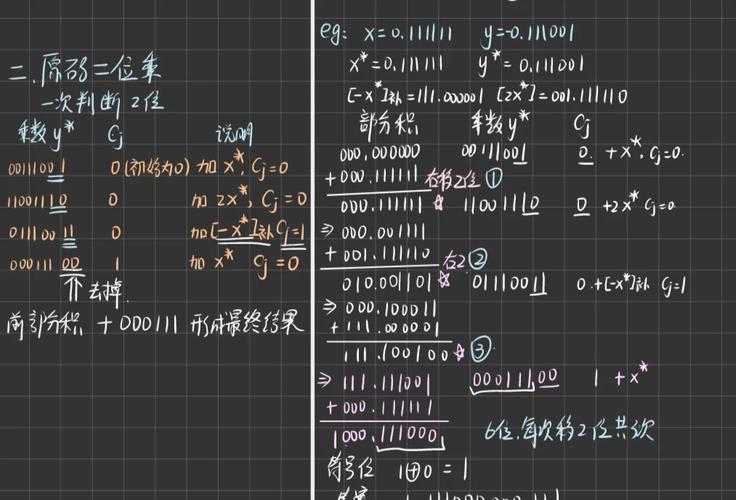 二.原码二位乘
一次判断2位
乘数y* Cj 说明
00111001 0(初始为0) 加x*, Cj=0
11001110 0 加2x*, Cj=0
01110011 0 加[-x*]补 Cj=1
00011100 1 加x* Cj=0
⇑去掉
前部分积 +000111 形成最终结果
eg: x=0.111111 y=-0.111001
x*=0.111111 y*=0.111001
[-x*]补=111.000001 [2x*]=001.111110
部分积 乘数y* Cj
000.000000 00111001 0. +x*, Cj=0.
+000.111111 右移2位①
000.111111☆ 11001110 0 +2x* Cj=0
⇒000.001111
+001.111110 右2②
010.001101☆ 01110011 0.+[-x*]补 Cj=1
⇒000.100011
+111.000001
111.100100☆③
⇒111.111001 00011100 1 +x*
+000.111111
1000.111000 6位,每次移2位共3次
符号位 1⊕0=1